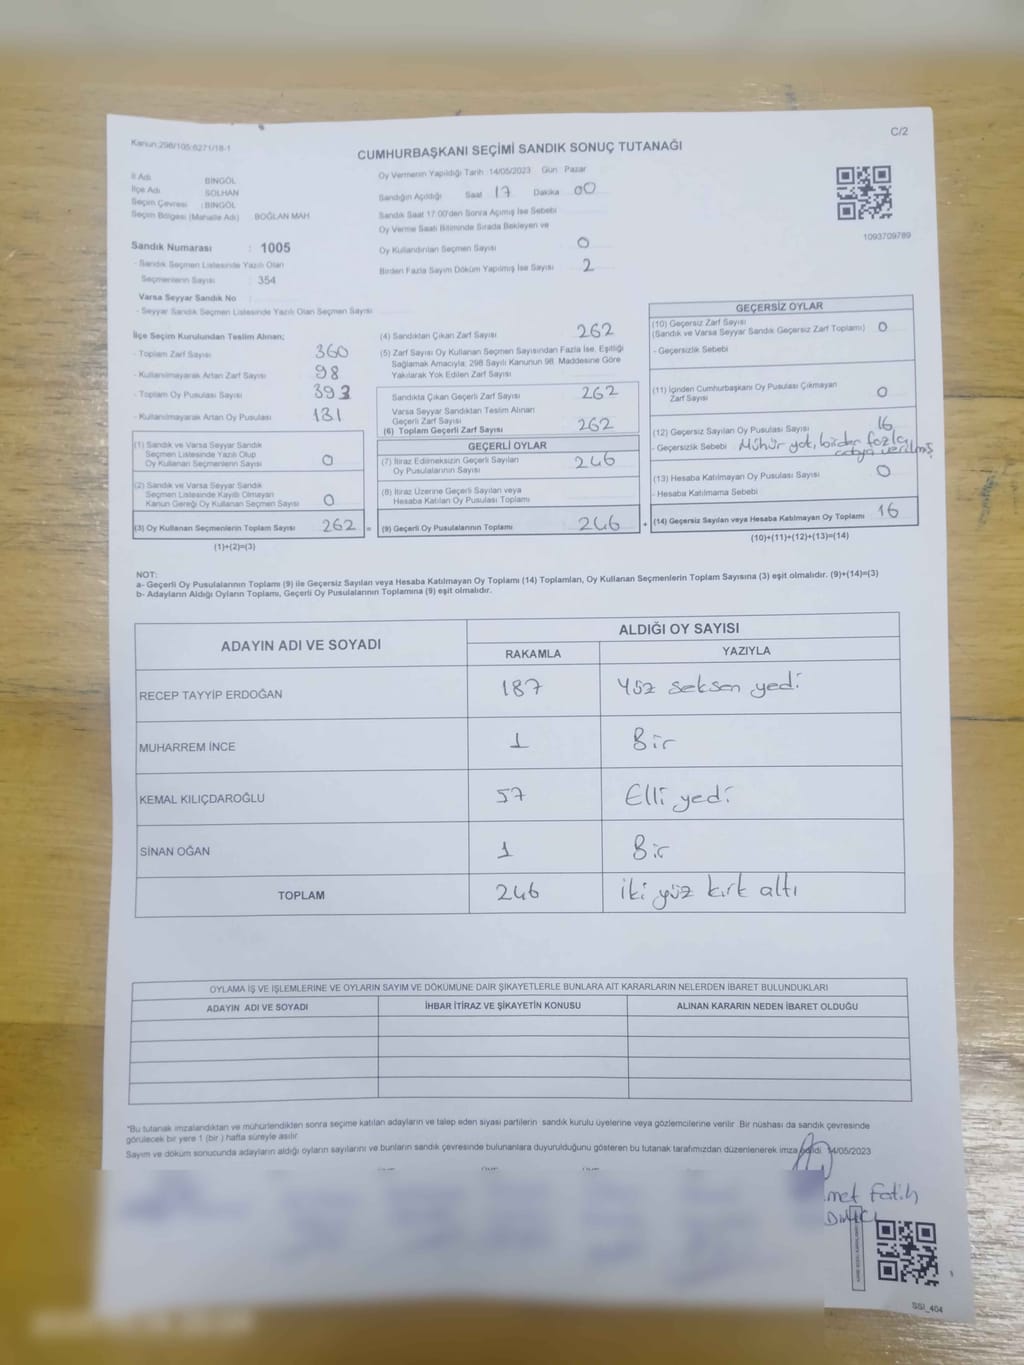 Kanun:298/105:6271/18-1
C/2
CUMHURBAŞKANI SEÇİMİ SANDIK SONUÇ TUTANAĞI
İl Adı BİNGÖL
İlçe Adı SOLHAN
Seçim Çevresi :BİNGÖL
Seçim Bölgesi (Mahalle Adı) BOĞLAN MAH
Sandık Numarası : 1005
- Sandık Seçmen Listesinde Yazılı Olan
Seçmenlerin Sayısı : 354
Varsa Seyyar Sandık No
- Seyyar Sandık Seçmen Listesinde Yazılı Olan Seçmen Sayısı
Oy Vermenin Yapıldığı Tarih :14/05/2023 Gün Pazar
Sandığın Açıldığı Saat 17 Dakika 00
Sandık Saat 17:00'den Sonra Açımış İse Sebebi
Oy Verme Saati Bitiminde Sırada Bekleyen ve
Oy Kullandırılan Seçmen Sayısı 0
Birden Fazla Sayım Döküm Yapılmış İse Sayısı 2
1093709789
İlçe Seçim Kurulundan Teslim Alınan;
- Toplam Zarf Sayısı 360
- Kullanılmayarak Artan Zarf Sayısı 98
- Toplam Oy Pusulası Sayısı 393
- Kullanılmayarak Artan Oy Pusulası 131
(1) Sandık ve Varsa Seyyar Sandık
Seçmen Listesinde Yazılı Olup
Oy Kullanan Seçmenlerin Sayısı 0
(2) Sandık ve Varsa Seyyar Sandık
Seçmen Listesinde Kayıtlı Olmayan
Kanun Gereği Oy Kullanan Seçmen Sayısı 0
(3) Oy Kullanan Seçmenlerin Toplam Sayısı 262 =
(1)+(2)=(3)
(4) Sandıktan Çıkan Zarf Sayısı 262
(5) Zarf Sayısı Oy Kullanan Seçmen Sayısından Fazla İse, Eşitliği
Sağlamak Amacıyla; 298 Sayılı Kanunun 98. Maddesine Göre
Yakılarak Yok Edilen Zarf Sayısı
Sandıkta Çıkan Geçerli Zarf Sayısı 262
Varsa Seyyar Sandıktan Teslim Alınan
Geçerli Zarf Sayısı
(6) Toplam Geçerli Zarf Sayısı 262
GEÇERLİ OYLAR
(7) İtiraz Edilmeksizin Geçerli Sayılan
Oy Pusulalarının Sayısı 246
(8) İtiraz Üzerine Geçerli Sayılan veya
Hesaba Katılan Oy Pusulası Toplamı
(9) Geçerli Oy Pusulalarının Toplamı 246 +
GEÇERSİZ OYLAR
(10) Geçersiz Zarf Sayısı
(Sandık ve Varsa Seyyar Sandık Geçersiz Zarf Toplamı) 0
- Geçersizlik Sebebi
(11) İçinden Cumhurbaşkanı Oy Pusulası Çıkmayan
Zarf Sayısı 0
(12) Geçersiz Sayılan Oy Pusulası Sayısı 16
- Geçersizlik Sebebi Mühür yok, birden fazla
adaya verilmiş
(13) Hesaba Katılmayan Oy Pusulası Sayısı 0
- Hesaba Katılmama Sebebi
(14) Geçersiz Sayılan veya Hesaba Katılmayan Oy Toplamı 16
(10)+(11)+(12)+(13)=(14)
NOT:
a- Geçerli Oy Pusulalarının Toplamı (9) ile Geçersiz Sayılan veya Hesaba Katılmayan Oy Toplamı (14) Toplamları, Oy Kullanan Seçmenlerin Toplam Sayısına (3) eşit olmalıdır. (9)+(14)=(3)
b- Adayların Aldığı Oyların Toplamı, Geçerli Oy Pusulalarının Toplamına (9) eşit olmalıdır.
ADAYIN ADI VE SOYADI
ALDIĞI OY SAYISI
RAKAMLA YAZIYLA
RECEP TAYYİP ERDOĞAN 187 Yüz seksen yedi
MUHARREM İNCE 1 Bir
KEMAL KILIÇDAROĞLU 57 Elli yedi
SİNAN OĞAN 1 Bir
TOPLAM 246 iki yüz kırk altı
OYLAMA İŞ VE İŞLEMLERİNE VE OYLARIN SAYIM VE DÖKÜMÜNE DAİR ŞİKAYETLERLE BUNLARA AİT KARARLARIN NELERDEN İBARET BULUNDUKLARI
ADAYIN ADI VE SOYADI İHBAR İTİRAZ VE ŞİKAYETİN KONUSU ALINAN KARARIN NEDEN İBARET OLDUĞU
*Bu tutanak imzalandıktan ve mühürlendikten sonra seçime katılan adayların ve talep eden siyasi partilerin sandık kurulu üyelerine veya gözlemcilerine verilir. Bir nüshası da sandık çevresinde
görülecek bir yere 1 (bir) hafta süreyle asılır.
Sayım ve döküm sonucunda adayların aldığı oyların sayılarını ve bunların sandık çevresinde bulunanlara duyurulduğunu gösteren bu tutanak tarafımızdan düzenlenerek imza edildi. 14/05/2023
met Fatih
SSI_404